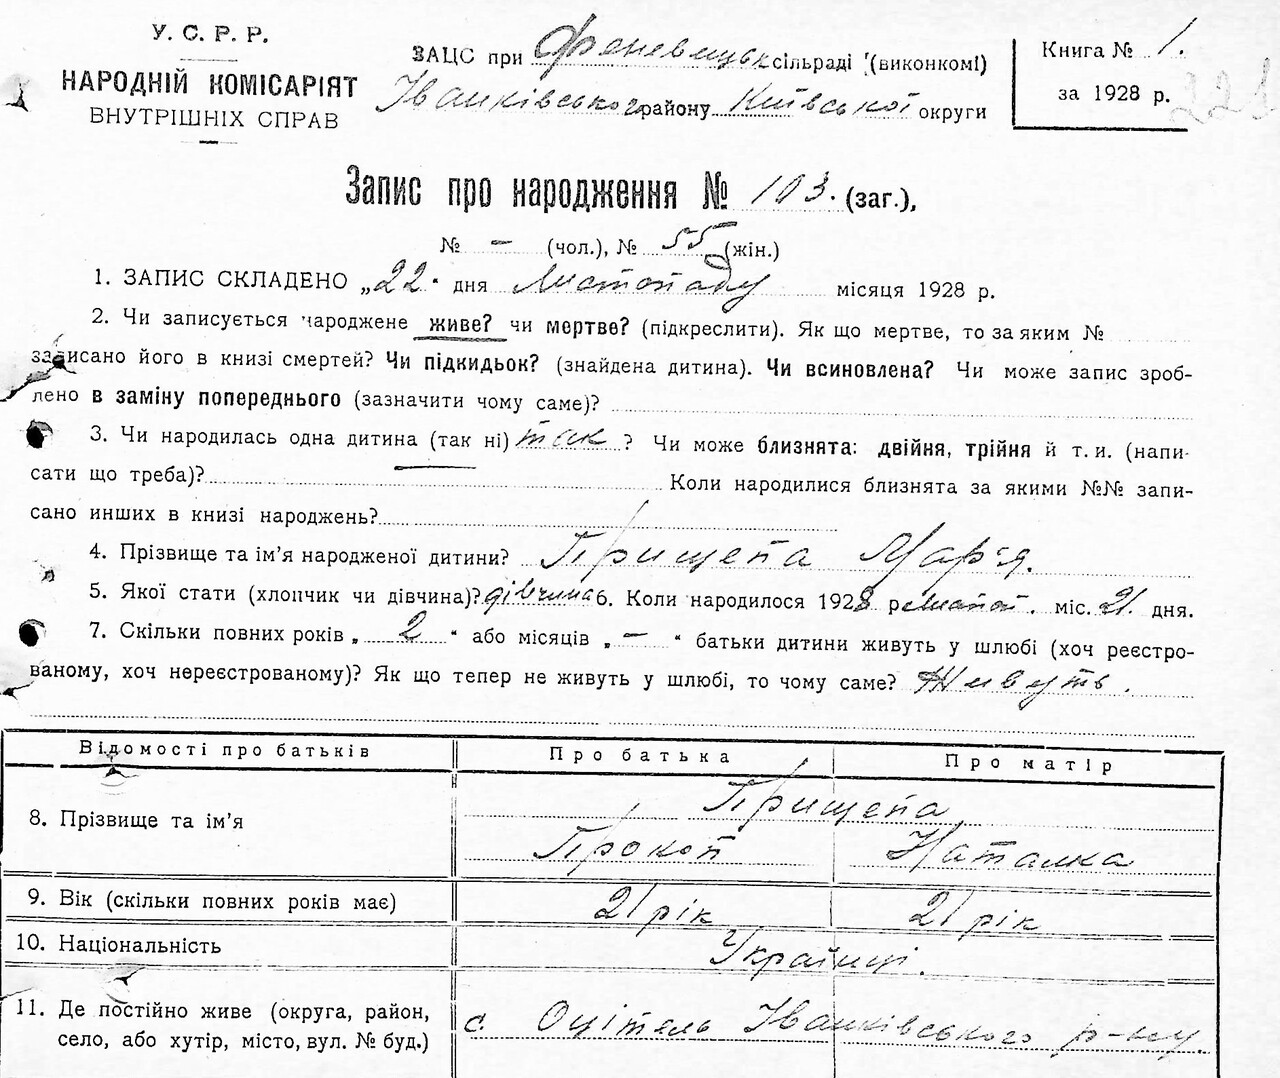 У. С. Р. Р.
НАРОДНІЙ КОМІСАРІЯТ
ВНУТРІШНІХ СПРАВ
ЗАЦС при Феневицьк сільраді (виконкомі)
Іванківського району Київської округи
Книга № 1.
за 1928 р.
221
Запис про народження № 103. (заг.),
№ – (чол.), № 55 (жін.)
1. ЗАПИС СКЛАДЕНО „22" дня Листопаду місяця 1928 р.
2. Чи записується народжене живе? чи мертве? (підкреслити). Як що мертве, то за яким №
записано його в книзі смертей? Чи підкидьок? (знайдена дитина). Чи всиновлена? Чи може запис зроб-
лено в заміну попереднього (зазначити чому саме)?
3. Чи народилась одна дитина (так ні) так ? Чи може близнята: двійня, трійня й т. и. (напи-
сати що треба)? Коли народилися близнята за якими №№ запи-
сано инших в книзі народжень?
4. Прізвище та ім'я народженої дитини? Прищепа Мар'я.
5. Якої стати (хлопчик чи дівчина)? дівчина 6. Коли народилося 1928 р. Листоп. міс. 21 дня.
7. Скільки повних років „ 2 " або місяців „ – " батьки дитини живуть у шлюбі (хоч реєстро-
ваному, хоч нереєстрованому)? Як що тепер не живуть у шлюбі, то чому саме? Живуть.
Відомості про батьків Про батька Про матір
8. Прізвище та ім'я Прищепа
Прокоп Наталка
9. Вік (скільки повних років має) 21 рік 21 рік
10. Національність Українці.
11. Де постійно живе (округа, район,
село, або хутір, місто, вул. № буд.) с. Оцітель Іванківського р-ну.